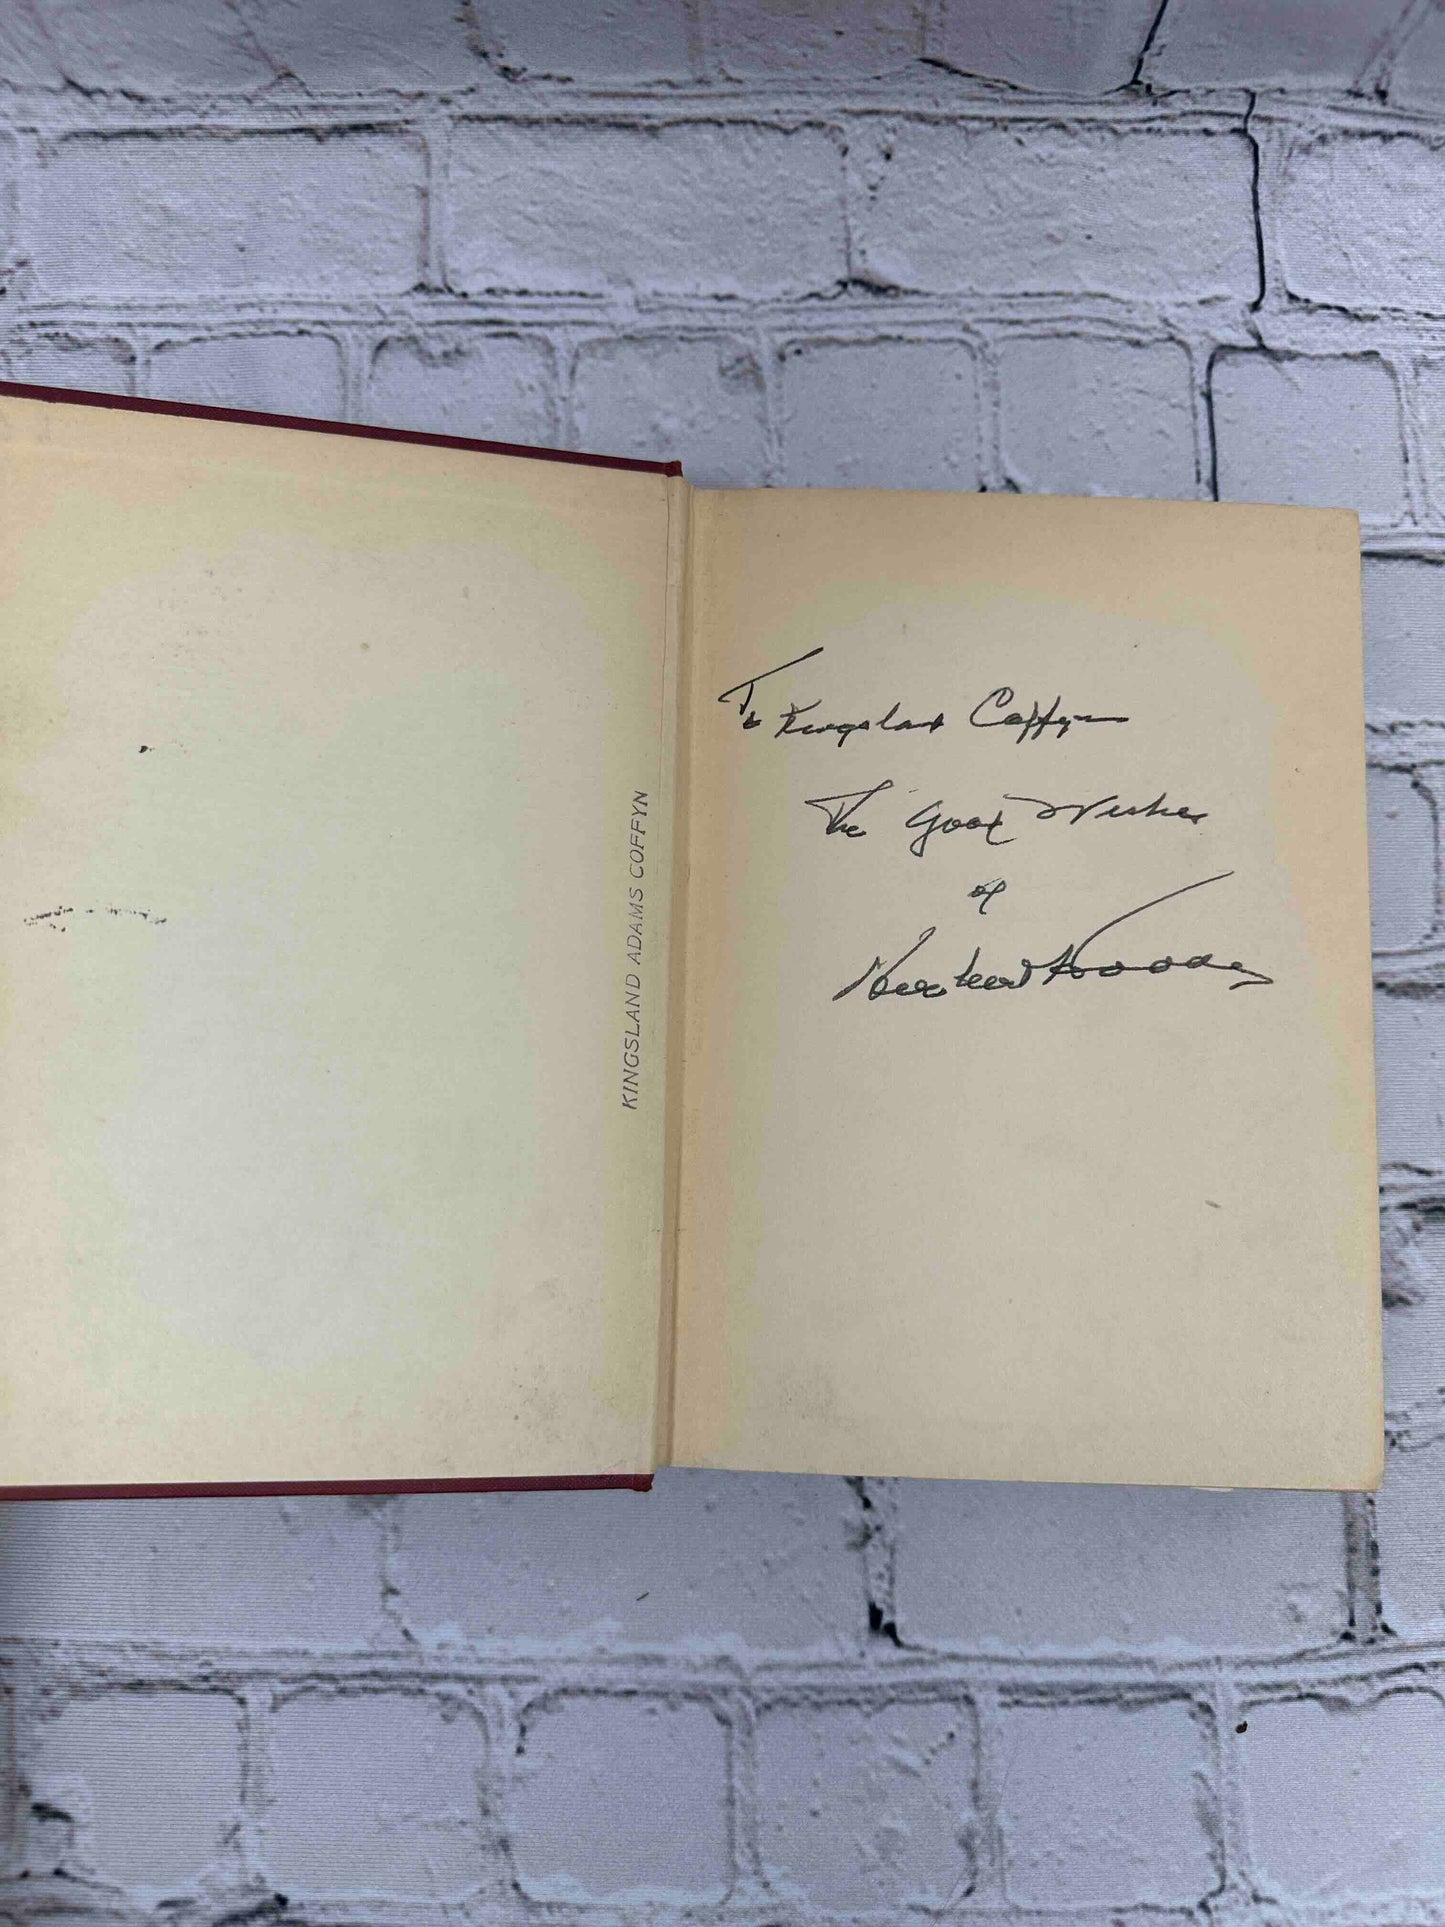 KINGSLAND ADAMS COFFYN
To Kingsland Coffyn
The Good Wishes
of
Herbert Hoover